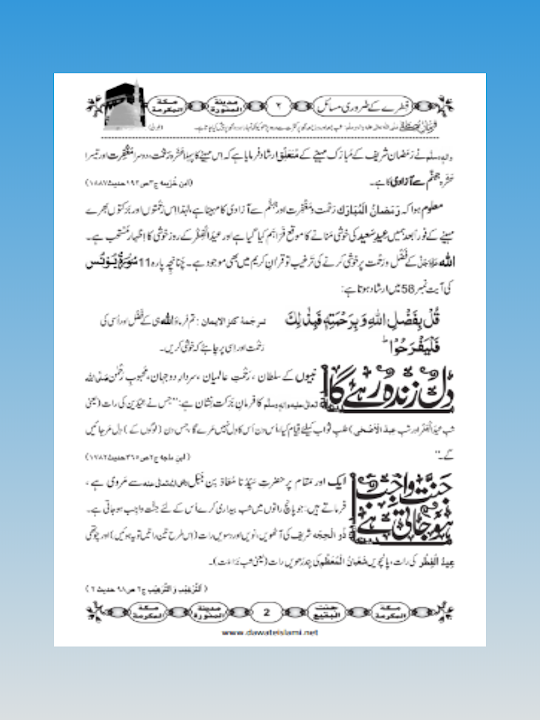 مكة المكرمة مدينة المنورة ٢ فطرے کے ضروری مسائل
والہ وسلم نے رَمَضان شریف کے مُبارَک مہینے کے مُتَعَلِّق ارشاد فرمایا ہے کہ اس مہینے کا پہلا عَشرہ رَحمت، دوسرا مغفِرت اور تیسرا
عَشرہ جہنَّم سے آزادی کا ہے۔ (ابن خُزیمہ ج۳ ص۱۹۲ حدیث ۱۸۸۷)
معلوم ہوا کہ رَمَضانُ الْمُبارَك رَحمت و مَغْفِرت اور جہنَّم سے آزادی کا مہینا ہے، لہٰذا اس رَحْمتوں اور بَرَکتوں بھرے
مہینے کے فوراً بعد ہمیں عیدِ سعید کی خوشی مَنانے کا موقع فَراہَم کیا گیا ہے اور عیدُ الْفِطْر کے روز خوشی کا اِظہار مُسْتَحَب ہے۔
اللہ کے فَضْل و رَحمت پر خوشی کرنے کی ترغیب تو قراٰنِ کریم میں بھی موجود ہے۔ چُنانچِہ پارہ 11 سُوْرَۃُ یُوْنُس
کی آیت نمبر 58 میں ارشاد ہوتا ہے:
قُلْ بِفَضْلِ اللّٰهِ وَ بِرَحْمَتِهٖ فَبِذٰلِكَ ترجَمۂ کنزالایمان : تم فرماؤ اللہ ہی کے فَضْل اور اُسی کی
فَلْیَفْرَحُوْاؕ رَحمت اور اِسی پر چاہئے کہ خوشی کریں۔
دل زندہ رہے گا نبیوں کے سلطان ، رَحمتِ عالَمیان ، سردارِ دو جہان، محبوبِ رَحْمٰن صلی اللہ
تعالٰی علیہ والہ وسلم کا فرمانِ بَرَکت نشان ہے: ”جس نے عیدَین کی رات (یعنی
شبِ عیدُ الْفِطْر اور شبِ عیدُ الْاَضْحٰی) طلبِ ثواب کیلئے قِیام کیا، اُس دن اُس کا دل نہیں مرے گا ، جس دن (لوگوں کے) دِل مَر جائیں
گے۔“ (ابن ماجه ج۲ ص۳۶۵ حدیث ۱۷۸۲)
جنت واجب ہو جاتی ہے ایک اور مَقام پر حضرتِ سیِّدُنا مُعاذ بِن جَبَل رضی اللہ تعالٰی عنہ سے مَروی ہے ،
فرماتے ہیں: جو پانچ راتوں میں شب بیداری کرے اُس کے لئے جنَّت واجِب ہو جاتی ہے۔
ذُو الْحِجَّہ شریف کی آٹھویں، نَویں اور دسویں رات (اس طرح تین راتیں تو یہ ہوئیں) اور چوتھی
عِیدُ الْفِطْر کی رات، پانچویں شَعْبانُ الْمُعَظَّم کی پندرَھویں رات (یعنی شبِ بَرَاءَت)۔
(اَلتَّرغِیب وَ التَّرهِیب ج۲ ص۹۸ حدیث ۲)
مكة المكرمة مدينة المنورة 2 جنت البقيع مكة المكرمة
www.dawateislami.net